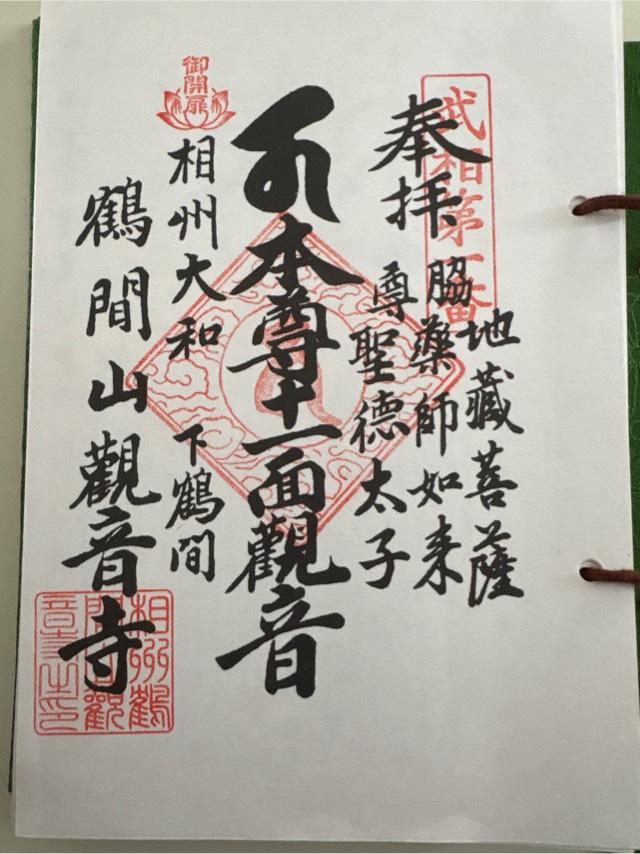 武相第一番
奉拝
地藏菩薩
脇藥師如来
尊聖德太子
本尊十一面觀音
御開扉
相州大和 下鶴間
鶴間山觀音寺
相州鶴
間山觀
音寺之印